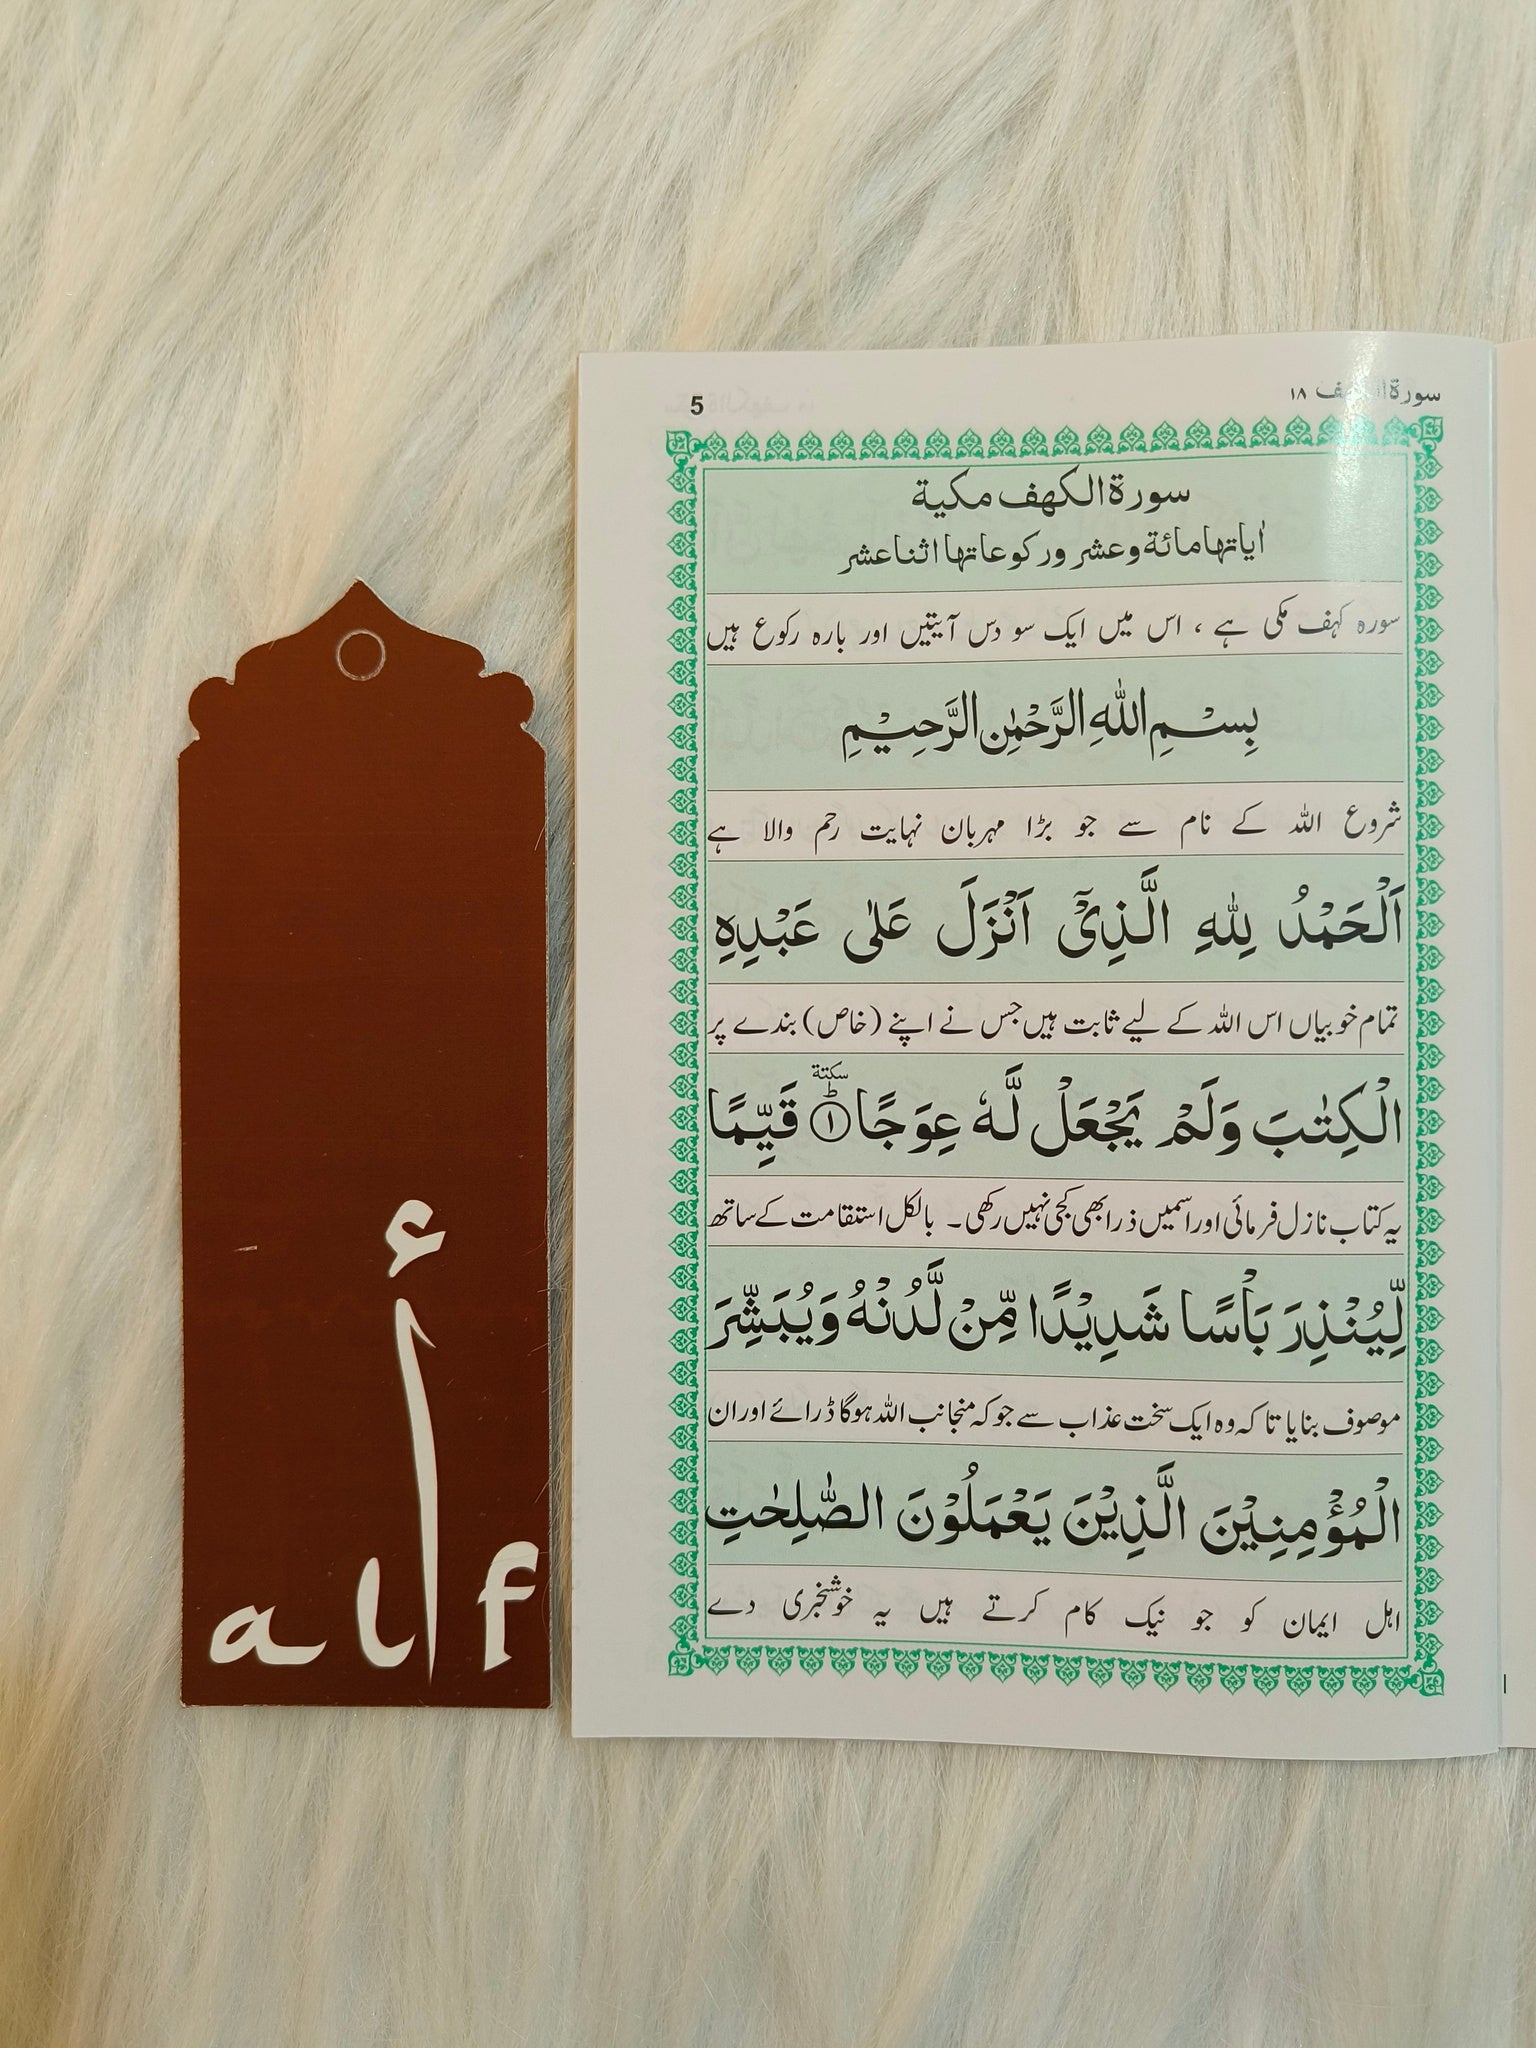 سورة الكهف ١٨
5
سورة الكهف مكية
اٰياتها مائة وعشر وركوعاتها اثنا عشر
سورہ کہف مکی ہے ، اس میں ایک سو دس آیتیں اور بارہ رکوع ہیں
بِسْمِ اللّٰهِ الرَّحْمٰنِ الرَّحِيْمِ
شروع اللہ کے نام سے جو بڑا مہربان نہایت رحم والا ہے
اَلْحَمْدُ لِلّٰهِ الَّذِيْٓ اَنْزَلَ عَلٰى عَبْدِهِ
تمام خوبیاں اس اللہ کے لیے ثابت ہیں جس نے اپنے (خاص) بندے پر
الْكِتٰبَ وَلَمْ يَجْعَلْ لَّهٗ عِوَجًا ؕ سكتة ١ قَيِّمًا
یہ کتاب نازل فرمائی اور اسمیں ذرا بھی کجی نہیں رکھی۔ بالکل استقامت کے ساتھ
لِّيُنْذِرَ بَاْسًا شَدِيْدًا مِّنْ لَّدُنْهُ وَيُبَشِّرَ
موصوف بنایا تا کہ وہ ایک سخت عذاب سے جو کہ منجانب اللہ ہوگا ڈرائے اور ان
الْمُؤْمِنِيْنَ الَّذِيْنَ يَعْمَلُوْنَ الصّٰلِحٰتِ
اہل ایمان کو جو نیک کام کرتے ہیں یہ خوشخبری دے
أ
alf